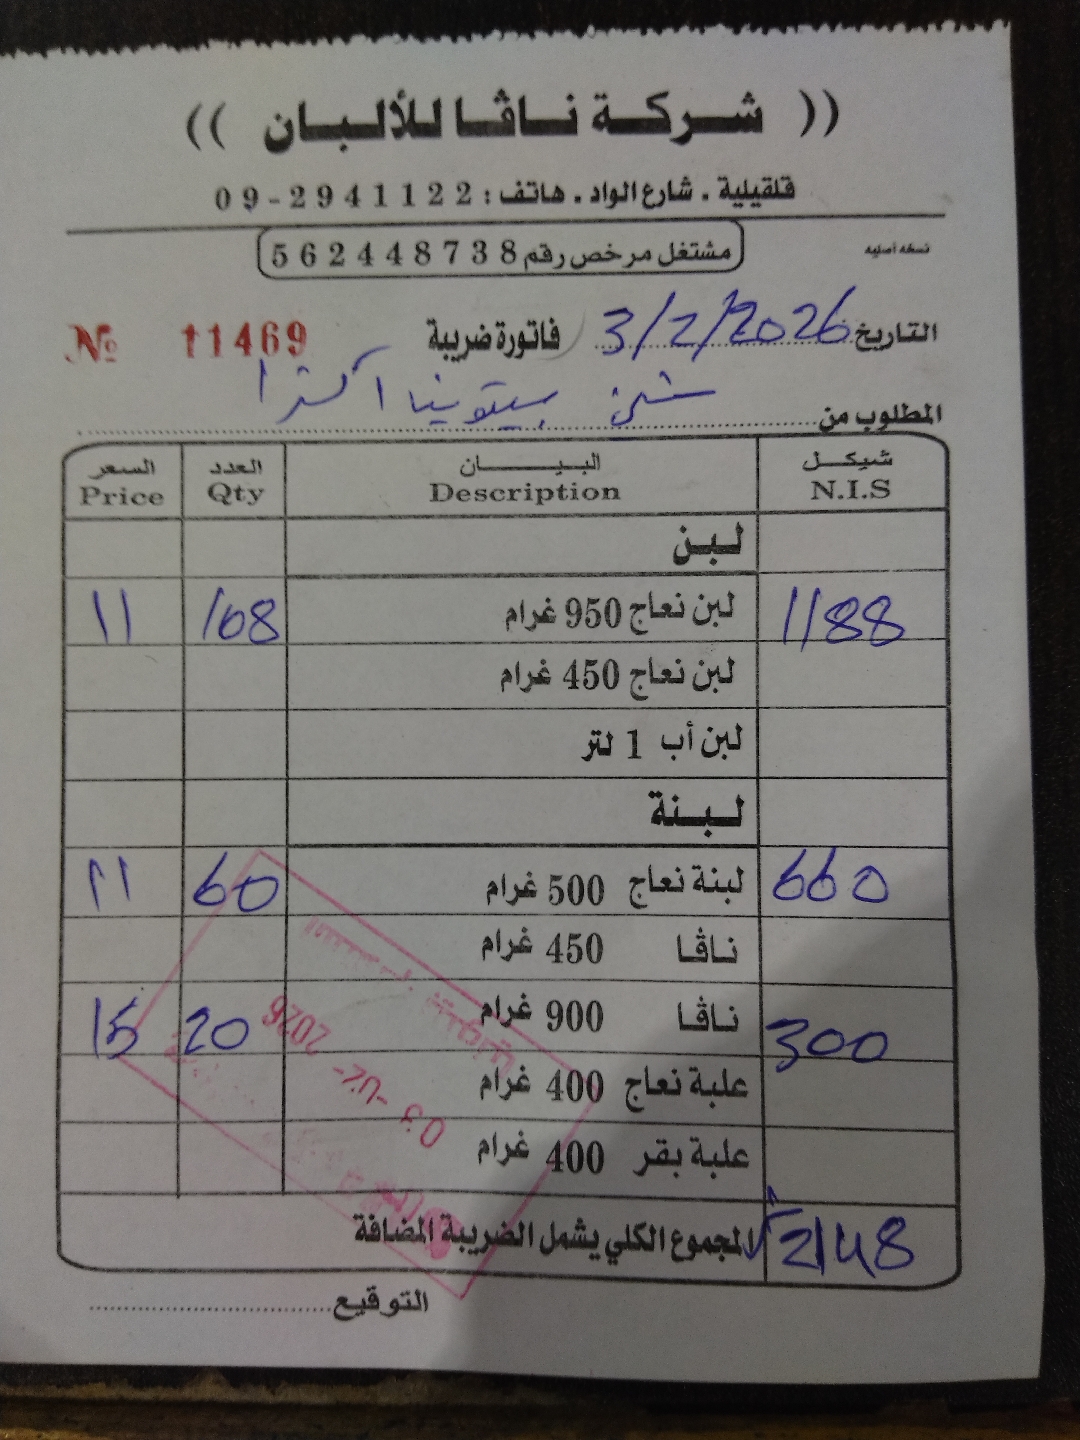 (( شركة ناڤا للألبان ))
قلقيلية . شارع الواد . هاتف : 09-2941122
مشتغل مرخص رقم 562448738
نسخه أصليه
التاريخ 3/2/2026 فاتورة ضريبة № 11469
المطلوب من بيتونيا اكسترا
شيكل البيان العدد السعر
N.I.S Description Qty Price
لبن
1188 لبن نعاج 950 غرام 108 11
لبن نعاج 450 غرام
لبن أب 1 لتر
لبنة
660 لبنة نعاج 500 غرام 60 11
ناڤا 450 غرام
300 ناڤا 900 غرام 20 15
علبة نعاج 400 غرام
علبة بقر 400 غرام
2148 المجموع الكلي يشمل الضريبة المضافة
التوقيع
03 -02- 2026